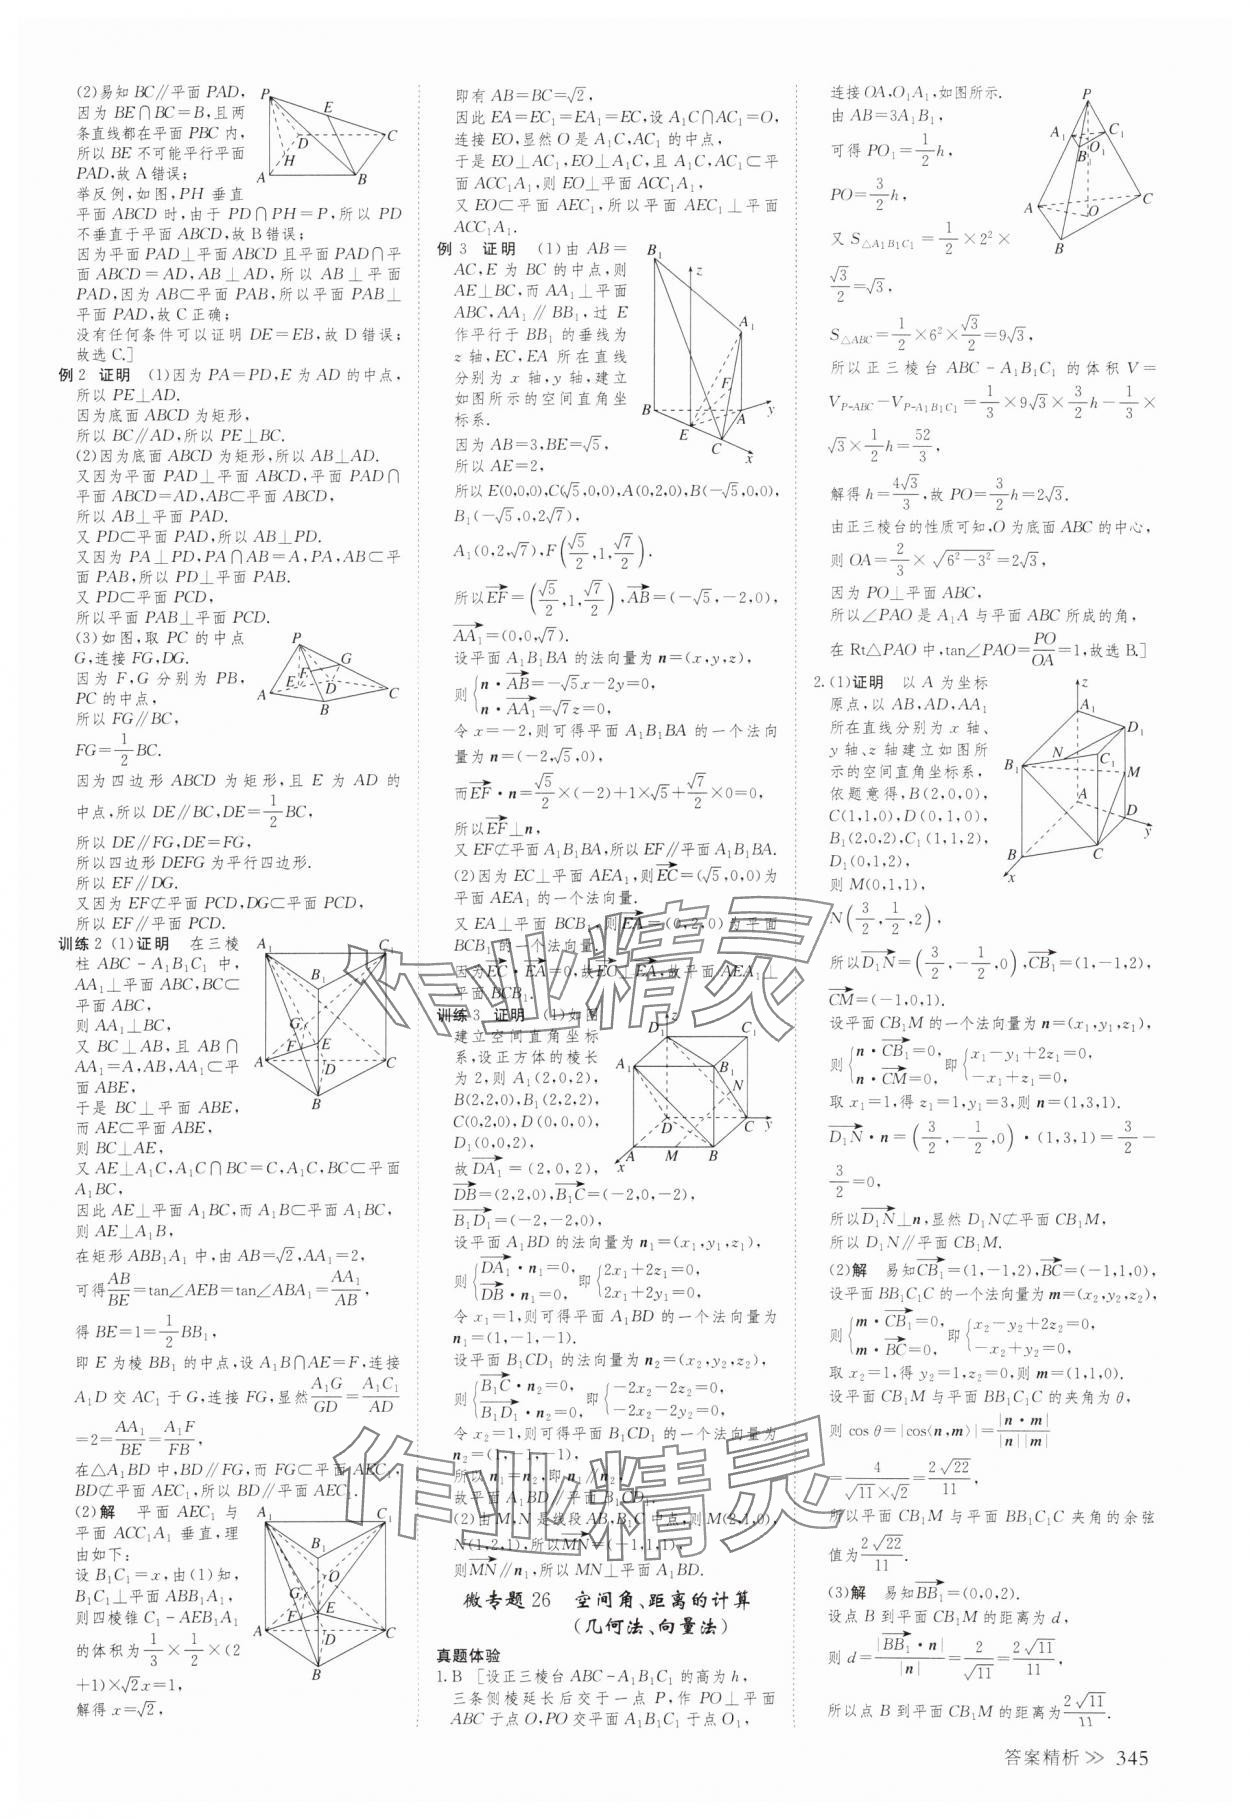 (2)易知 BC∥平面 PAD,
因为 BE∩BC=B,且两
条直线都在平面 PBC 内,
所以 BE 不可能平行平面
PAD,故 A 错误;
举反例,如图,PH 垂直
平面 ABCD 时,由于 PD∩PH=P,所以 PD
不垂直于平面 ABCD,故 B 错误;
因为平面 PAD⊥平面 ABCD 且平面 PAD∩平
面 ABCD=AD,AB⊥AD,所以 AB⊥平面
PAD,因为 AB⊂平面 PAB,所以平面 PAB⊥
平面 PAD,故 C 正确;
没有任何条件可以证明 DE=EB,故 D 错误;
故选 C.]
例 2 证明 (1)因为 PA=PD,E 为 AD 的中点,
所以 PE⊥AD.
因为底面 ABCD 为矩形,
所以 BC∥AD,所以 PE⊥BC.
(2)因为底面 ABCD 为矩形,所以 AB⊥AD.
又因为平面 PAD⊥平面 ABCD,平面 PAD∩
平面 ABCD=AD,AB⊂平面 ABCD,
所以 AB⊥平面 PAD.
又 PD⊂平面 PAD,所以 AB⊥PD.
又因为 PA⊥PD,PA∩AB=A,PA,AB⊂平
面 PAB,所以 PD⊥平面 PAB.
又 PD⊂平面 PCD,
所以平面 PAB⊥平面 PCD.
(3)如图,取 PC 的中点
G,连接 FG,DG.
因为 F,G 分别为 PB,
PC 的中点,
所以 FG∥BC,
FG=1/2 BC.
因为四边形 ABCD 为矩形,且 E 为 AD 的
中点,所以 DE∥BC,DE=1/2 BC,
所以 DE∥FG,DE=FG,
所以四边形 DEFG 为平行四边形.
所以 EF∥DG.
又因为 EF⊄平面 PCD,DG⊂平面 PCD,
所以 EF∥平面 PCD.
训练 2 (1)证明 在三棱
柱 ABC-A₁B₁C₁ 中,
AA₁⊥平面 ABC,BC⊂
平面 ABC,
则 AA₁⊥BC,
又 BC⊥AB,且 AB∩
AA₁=A,AB,AA₁⊂平
面 ABE,
于是 BC⊥平面 ABE,
而 AE⊂平面 ABE,
则 BC⊥AE,
又 AE⊥A₁C,A₁C∩BC=C,A₁C,BC⊂平面
A₁BC,
因此 AE⊥平面 A₁BC,而 A₁B⊂平面 A₁BC,
则 AE⊥A₁B,
在矩形 ABB₁A₁ 中,由 AB=√2,AA₁=2,
可得 AB/BE=tan∠AEB=tan∠ABA₁=AA₁/AB,
得 BE=1=1/2 BB₁,
即 E 为棱 BB₁ 的中点,设 A₁B∩AE=F,连接
A₁D 交 AC₁ 于 G,连接 FG,显然 A₁G/GD=A₁C₁/AD
=2=AA₁/BE=A₁F/FB,
在△A₁BD 中,BD∥FG,而 FG⊂平面 AEC₁,
BD⊄平面 AEC₁,所以 BD∥平面 AEC₁.
(2)解 平面 AEC₁ 与
平面 ACC₁A₁ 垂直,理
由如下:
设 B₁C₁=x,由(1)知,
B₁C₁⊥平面 ABB₁A₁,
则四棱锥 C₁-AEB₁A₁
的体积为 1/3×1/2×(2
+1)×√2x=1,
解得 x=√2,
即有 AB=BC=√2,
因此 EA=EC₁=EA₁=EC,设 A₁C∩AC₁=O,
连接 EO,显然 O 是 A₁C,AC₁ 的中点,
于是 EO⊥AC₁,EO⊥A₁C,且 A₁C,AC₁⊂平
面 ACC₁A₁,则 EO⊥平面 ACC₁A₁,
又 EO⊂平面 AEC₁,所以平面 AEC₁⊥平面
ACC₁A₁.
例 3 证明 (1)由 AB=
AC,E 为 BC 的中点,则
AE⊥BC,而 AA₁⊥平面
ABC,AA₁∥BB₁,过 E
作平行于 BB₁ 的垂线为
z 轴,EC,EA 所在直线
分别为 x 轴,y 轴,建立
如图所示的空间直角坐
标系.
因为 AB=3,BE=√5,
所以 AE=2,
所以 E(0,0,0),C(√5,0,0),A(0,2,0),B(-√5,0,0),
B₁(-√5,0,2√7),
A₁(0,2,√7),F(√5/2,1,√7/2).
所以EF→=(√5/2,1,√7/2),AB→=(-√5,-2,0),
AA₁→=(0,0,√7).
设平面 A₁B₁BA 的法向量为 n=(x,y,z),
则{n·AB→=-√5x-2y=0,
n·AA₁→=√7z=0,
令 x=-2,则可得平面 A₁B₁BA 的一个法向
量为 n=(-2,√5,0),
而EF→·n=√5/2×(-2)+1×√5+√7/2×0=0,
所以EF→⊥n,
又 EF⊄平面 A₁B₁BA,所以 EF∥平面 A₁B₁BA.
(2)因为 EC⊥平面 AEA₁,则EC→=(√5,0,0)为
平面 AEA₁ 的一个法向量.
又 EA⊥平面 BCB₁,则EA→=(0,2,0)为平面
BCB₁ 的一个法向量.
因为EC→·EA→=0,故EC→⊥EA→,故平面 AEA₁⊥
平面 BCB₁.
训练 3 证明 (1)如图
建立空间直角坐标
系,设正方体的棱长
为 2,则 A₁(2,0,2),
B(2,2,0),B₁(2,2,2),
C(0,2,0),D(0,0,0),
D₁(0,0,2),
故DA₁→=(2,0,2),
DB→=(2,2,0),B₁C→=(-2,0,-2),
B₁D₁→=(-2,-2,0),
设平面 A₁BD 的法向量为 n₁=(x₁,y₁,z₁),
则{DA₁→·n₁=0, 即{2x₁+2z₁=0,
DB→·n₁=0, 2x₁+2y₁=0,
令 x₁=1,则可得平面 A₁BD 的一个法向量为
n₁=(1,-1,-1).
设平面 B₁CD₁ 的法向量为 n₂=(x₂,y₂,z₂),
则{B₁C→·n₂=0, 即{-2x₂-2z₂=0,
B₁D₁→·n₂=0, -2x₂-2y₂=0,
令 x₂=1,则可得平面 B₁CD₁ 的一个法向量为
n₂=(1,-1,-1).
所以 n₁=n₂,即 n₁∥n₂,
故平面 A₁BD∥平面 B₁CD₁.
(2)由 M,N 是线段 AB,B₁C 中点,则 M(2,1,0),
N(1,2,1),所以MN→=(-1,1,1),
则MN→∥n₁,所以 MN⊥平面 A₁BD.
微专题 26 空间角、距离的计算
(几何法、向量法)
真题体验
1.B [设正三棱台 ABC-A₁B₁C₁ 的高为 h,
三条侧棱延长后交于一点 P,作 PO⊥平面
ABC 于点 O,PO 交平面 A₁B₁C₁ 于点 O₁,
连接 OA,O₁A₁,如图所示.
由 AB=3A₁B₁,
可得 PO₁=1/2 h,
PO=3/2 h,
又 S△A₁B₁C₁=1/2×2²×
√3/2=√3,
S△ABC=1/2×6²×√3/2=9√3,
所以正三棱台 ABC-A₁B₁C₁ 的体积 V=
V_P-ABC-V_P-A₁B₁C₁=1/3×9√3×3/2 h-1/3×
√3×1/2 h=52/3,
解得 h=4√3/3,故 PO=3/2 h=2√3.
由正三棱台的性质可知,O 为底面 ABC 的中心,
则 OA=2/3×√(6²-3²)=2√3,
因为 PO⊥平面 ABC,
所以∠PAO 是 A₁A 与平面 ABC 所成的角,
在 Rt△PAO 中,tan∠PAO=PO/OA=1,故选 B.]
2.(1)证明 以 A 为坐标
原点,以 AB,AD,AA₁
所在直线分别为 x 轴、
y 轴、z 轴建立如图所
示的空间直角坐标系,
依题意得,B(2,0,0),
C(1,1,0),D(0,1,0),
B₁(2,0,2),C₁(1,1,2),
D₁(0,1,2),
则 M(0,1,1),
N(3/2,1/2,2),
所以D₁N→=(3/2,-1/2,0),CB₁→=(1,-1,2),
CM→=(-1,0,1).
设平面 CB₁M 的一个法向量为 n=(x₁,y₁,z₁),
则{n·CB₁→=0, 即{x₁-y₁+2z₁=0,
n·CM→=0, -x₁+z₁=0,
取 x₁=1,得 z₁=1,y₁=3,则 n=(1,3,1).
D₁N→·n=(3/2,-1/2,0)·(1,3,1)=3/2-
3/2=0,
所以D₁N→⊥n,显然 D₁N⊄平面 CB₁M,
所以 D₁N∥平面 CB₁M.
(2)解 易知CB₁→=(1,-1,2),BC→=(-1,1,0),
设平面 BB₁C₁C 的一个法向量为 m=(x₂,y₂,z₂),
则{m·CB₁→=0, 即{x₂-y₂+2z₂=0,
m·BC→=0, -x₂+y₂=0,
取 x₂=1,得 y₂=1,z₂=0,则 m=(1,1,0).
设平面 CB₁M 与平面 BB₁C₁C 的夹角为 θ,
则 cos θ=|cos⟨n,m⟩|=|n·m|/|n||m|
=4/(√11×√2)=2√22/11.
所以平面 CB₁M 与平面 BB₁C₁C 夹角的余弦
值为 2√22/11.
(3)解 易知BB₁→=(0,0,2).
设点 B 到平面 CB₁M 的距离为 d,
则 d=|BB₁→·n|/|n|=2/√11=2√11/11,
所以点 B 到平面 CB₁M 的距离为 2√11/11.
作业精灵
作业精灵
答案精析 >> 345